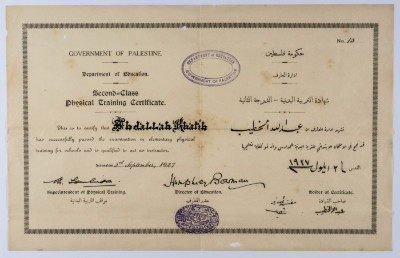 No. 13
GOVERNMENT OF PALESTINE.
Department of Education.
Second-Class
Physical Training Certificate.
This is to certify that Abdallah Khatib
has successfully passed the examination in elementary physical
training for schools and is qualified to act as instructor.
September, 1927
Superintendent of Physical Training.
Director of Education.
Holder of Certificate.
DEPARTMENT OF EDUCATION
GOVERNMENT OF PALESTINE
حكومة فلسطين
ادارة المعارف
شهادة التربية البدنية - الدرجة الثانية
تشهد ادارة المعارف ان عبد الله الخطيب
ايلول ١٩٢٧
مراقب التربية البدنية
مدير المعارف
صاحب الشهادة